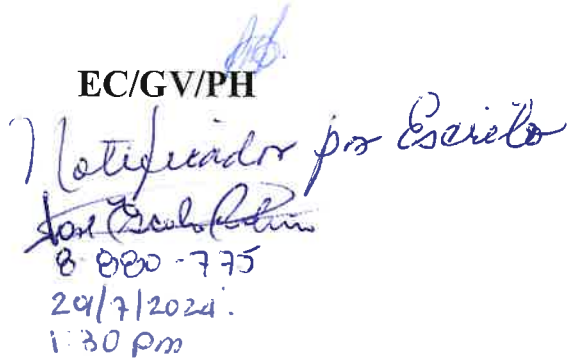 EC/GV/PH
Notificador por Escrito
José
8 880-775
29/7/2024.
1:30 pm